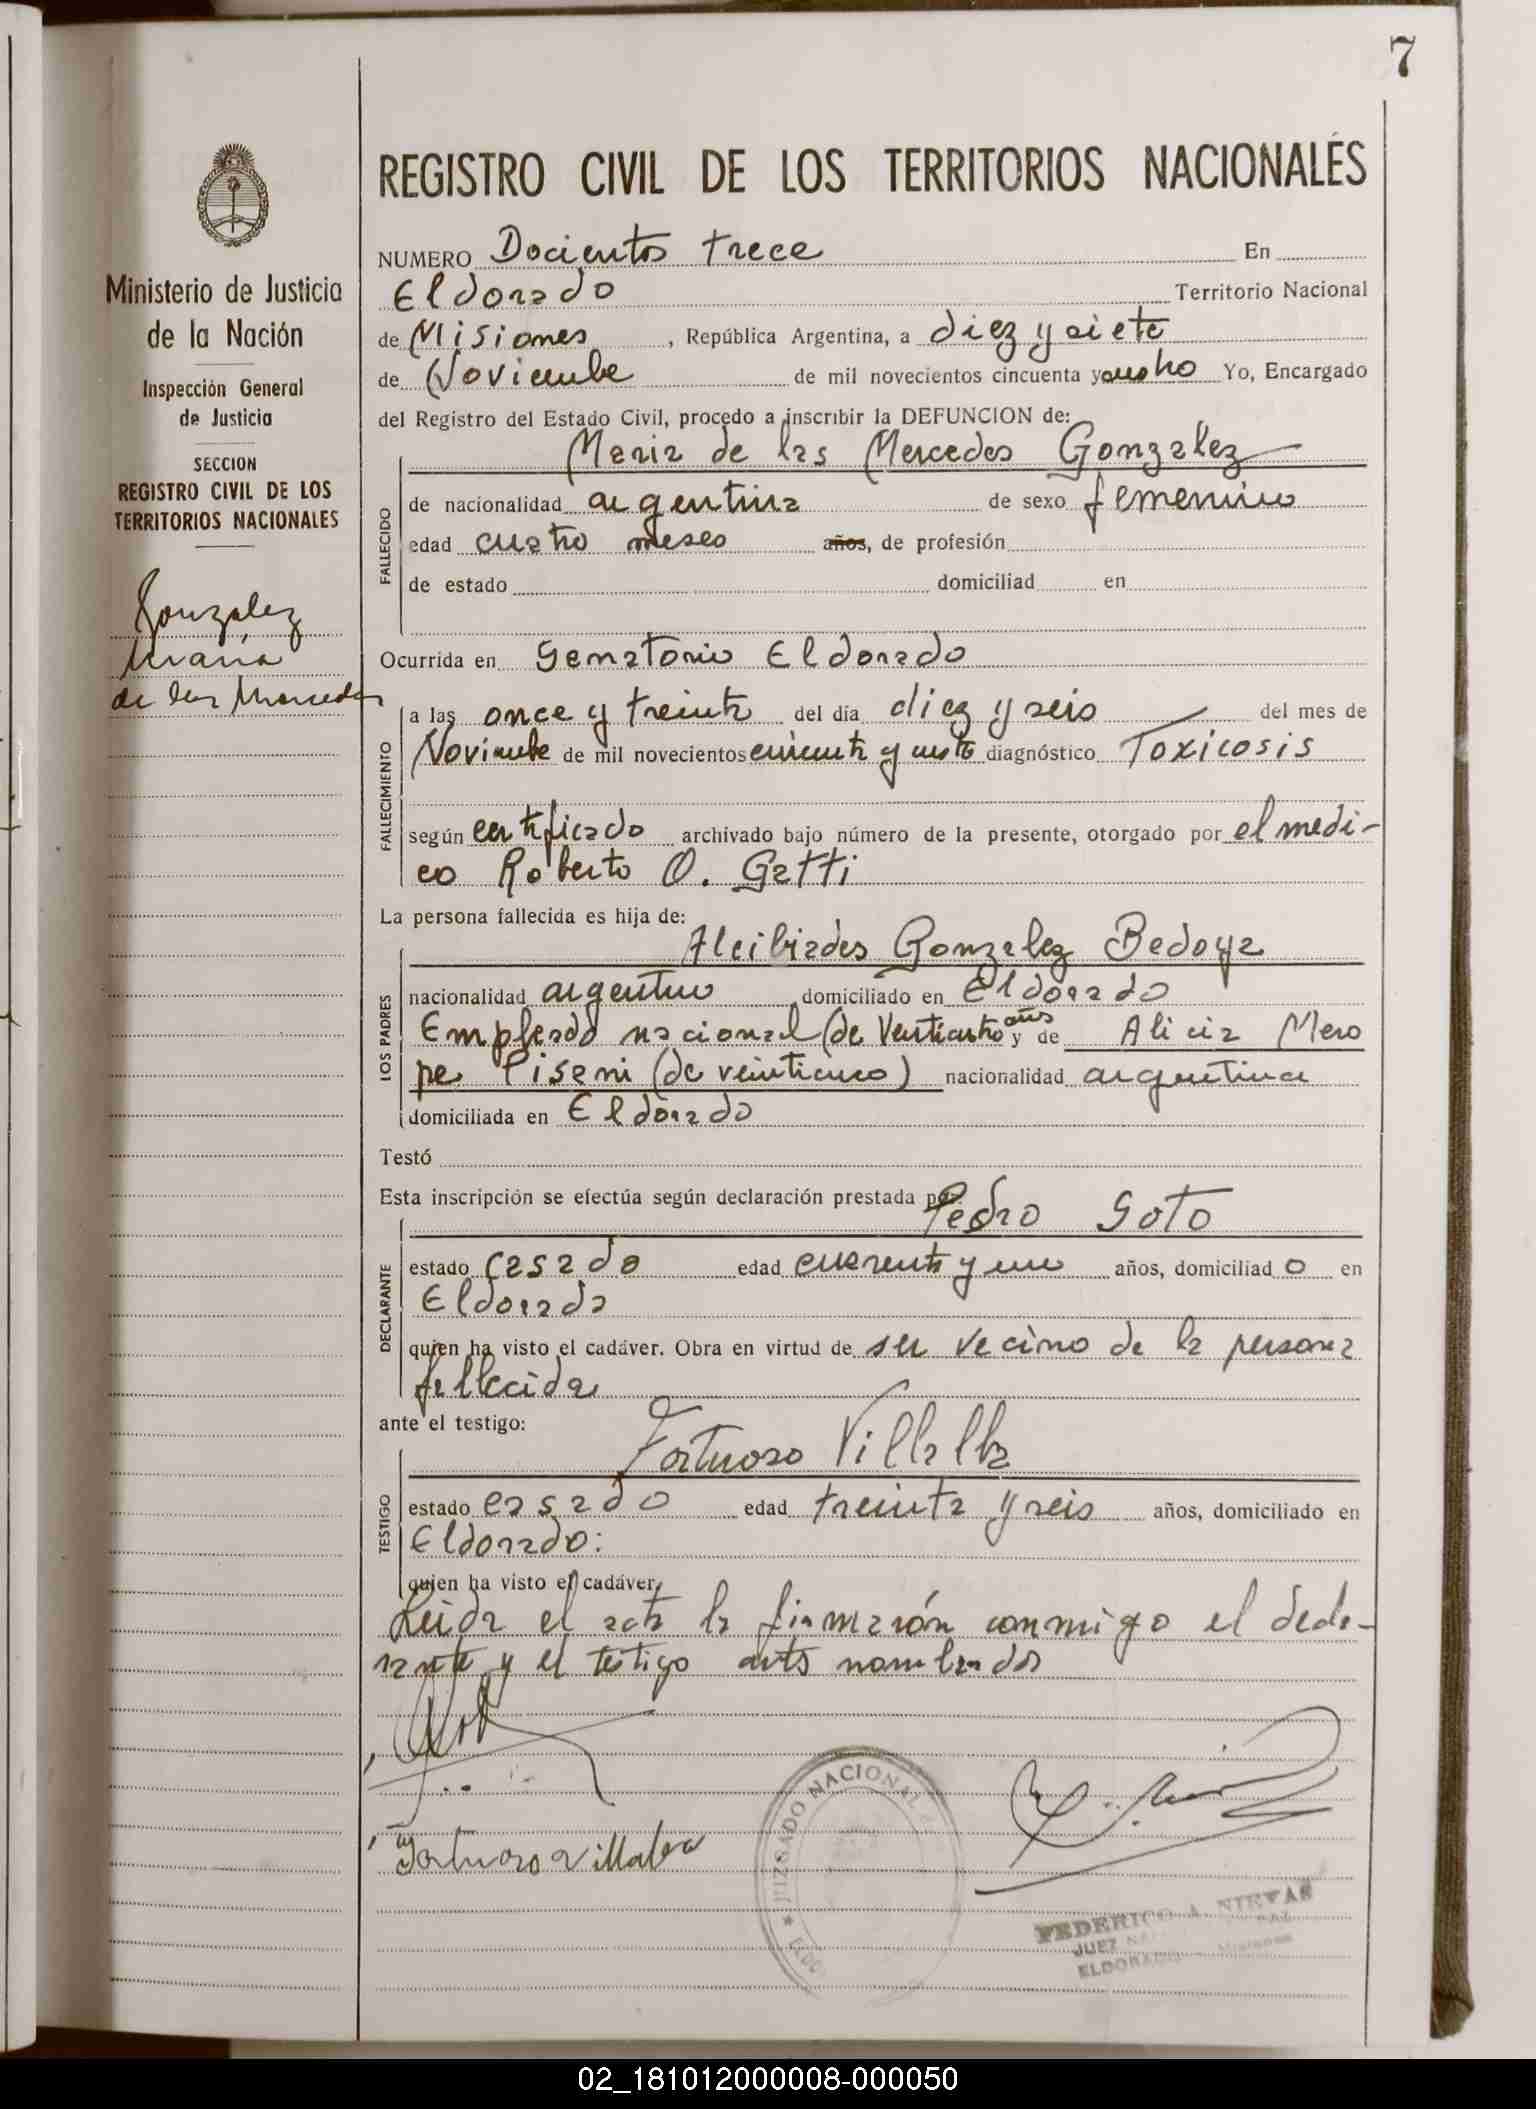 7
REGISTRO CIVIL DE LOS TERRITORIOS NACIONALES
Ministerio de Justicia
de la Nación
Inspección General
de Justicia
SECCION
REGISTRO CIVIL DE LOS
TERRITORIOS NACIONALES
Gonzalez
María
de las Mercedes
NUMERO Docientos trece En
Eldorado Territorio Nacional
de Misiones, República Argentina, a diez y siete
de Noviembre de mil novecientos cincuenta y cuatro Yo, Encargado
del Registro del Estado Civil, procedo a inscribir la DEFUNCION de:
Maria de las Mercedes Gonzalez
FALLECIDO
de nacionalidad argentina de sexo femenino
edad cuatro meses años, de profesión
de estado domiciliad en
Ocurrida en Sanatorio Eldorado
FALLECIMIENTO
a las once y treinta del día diez y seis del mes de
Noviembre de mil novecientos cincuenta y cuatro diagnóstico Toxicosis
según certificado archivado bajo número de la presente, otorgado por el medi-
co Roberto O. Gatti
La persona fallecida es hija de:
Alcibiades Gonzalez Bedoya
LOS PADRES
nacionalidad argentino domiciliado en Eldorado
Empleado nacional (de Venticuatro años y de Alicia Mero
pe Pisani (de veinticinco) nacionalidad argentina
domiciliada en Eldorado
Testó
Esta inscripción se efectúa según declaración prestada por:
Pedro Soto
DECLARANTE
estado casado edad cuarenta y uno años, domiciliad o en
Eldorado
quien ha visto el cadáver. Obra en virtud de ser vecino de la persona
fallecida
ante el testigo:
Fortuoso Villalba
TESTIGO
estado casado edad treinta y seis años, domiciliado en
Eldorado:
quien ha visto el cadáver.
Leida el acta la firmarón conmigo el decla-
rante y el testigo ants nombrados
Fortuoso Villalba
JUZGADO NACIONAL
FEDERICO A. NIEVAS
JUEZ
ELDORADO - Misiones
02_181012000008-000050